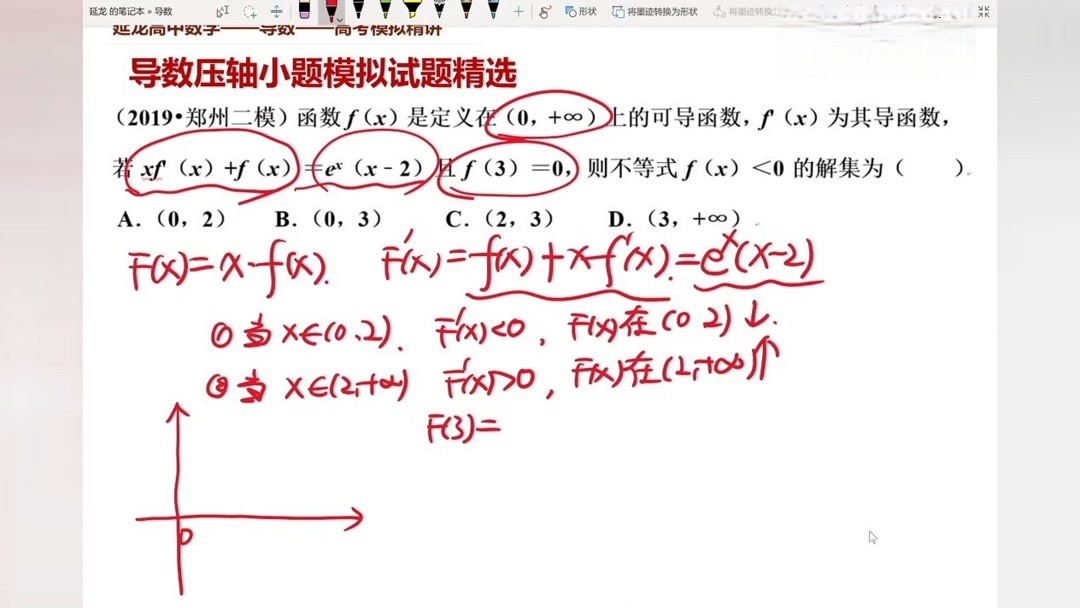 延龙 的笔记本 » 导数
形状 将墨迹转换为形状
延龙高中数学——导数——高考模拟精讲
导数压轴小题模拟试题精选
（2019•郑州二模）函数 f（x）是定义在（0，+∞）上的可导函数，f'（x）为其导函数，
若 xf'（x）+f（x）=eˣ（x﹣2）且 f（3）=0，则不等式 f（x）＜0 的解集为（ ）.
A.（0，2） B.（0，3） C.（2，3） D.（3，+∞）
F(x)=x·f(x). F'(x)=f(x)+x·f'(x).=eˣ(x-2)
① 当 x∈(0,2). F'(x)<0, F(x)在(0 2)↓.
② 当 x∈(2,+∞) F'(x)>0, F(x)在(2,+∞)↑
F(3)=
0